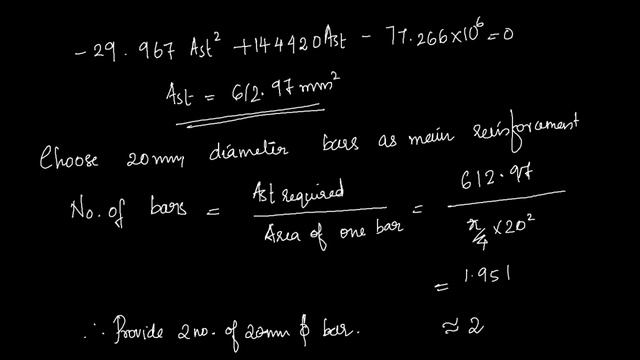 -29.967 Ast² + 144420Ast - 77.266×10⁶ = 0
Ast = 612.97 mm²
Choose 20mm diameter bars as main reinforcement
No. of bars = Ast required / Area of one bar = 612.97 / π/4 × 20²
= 1.951
≈ 2
∴ Provide 2 no. of 20mm ϕ bar.